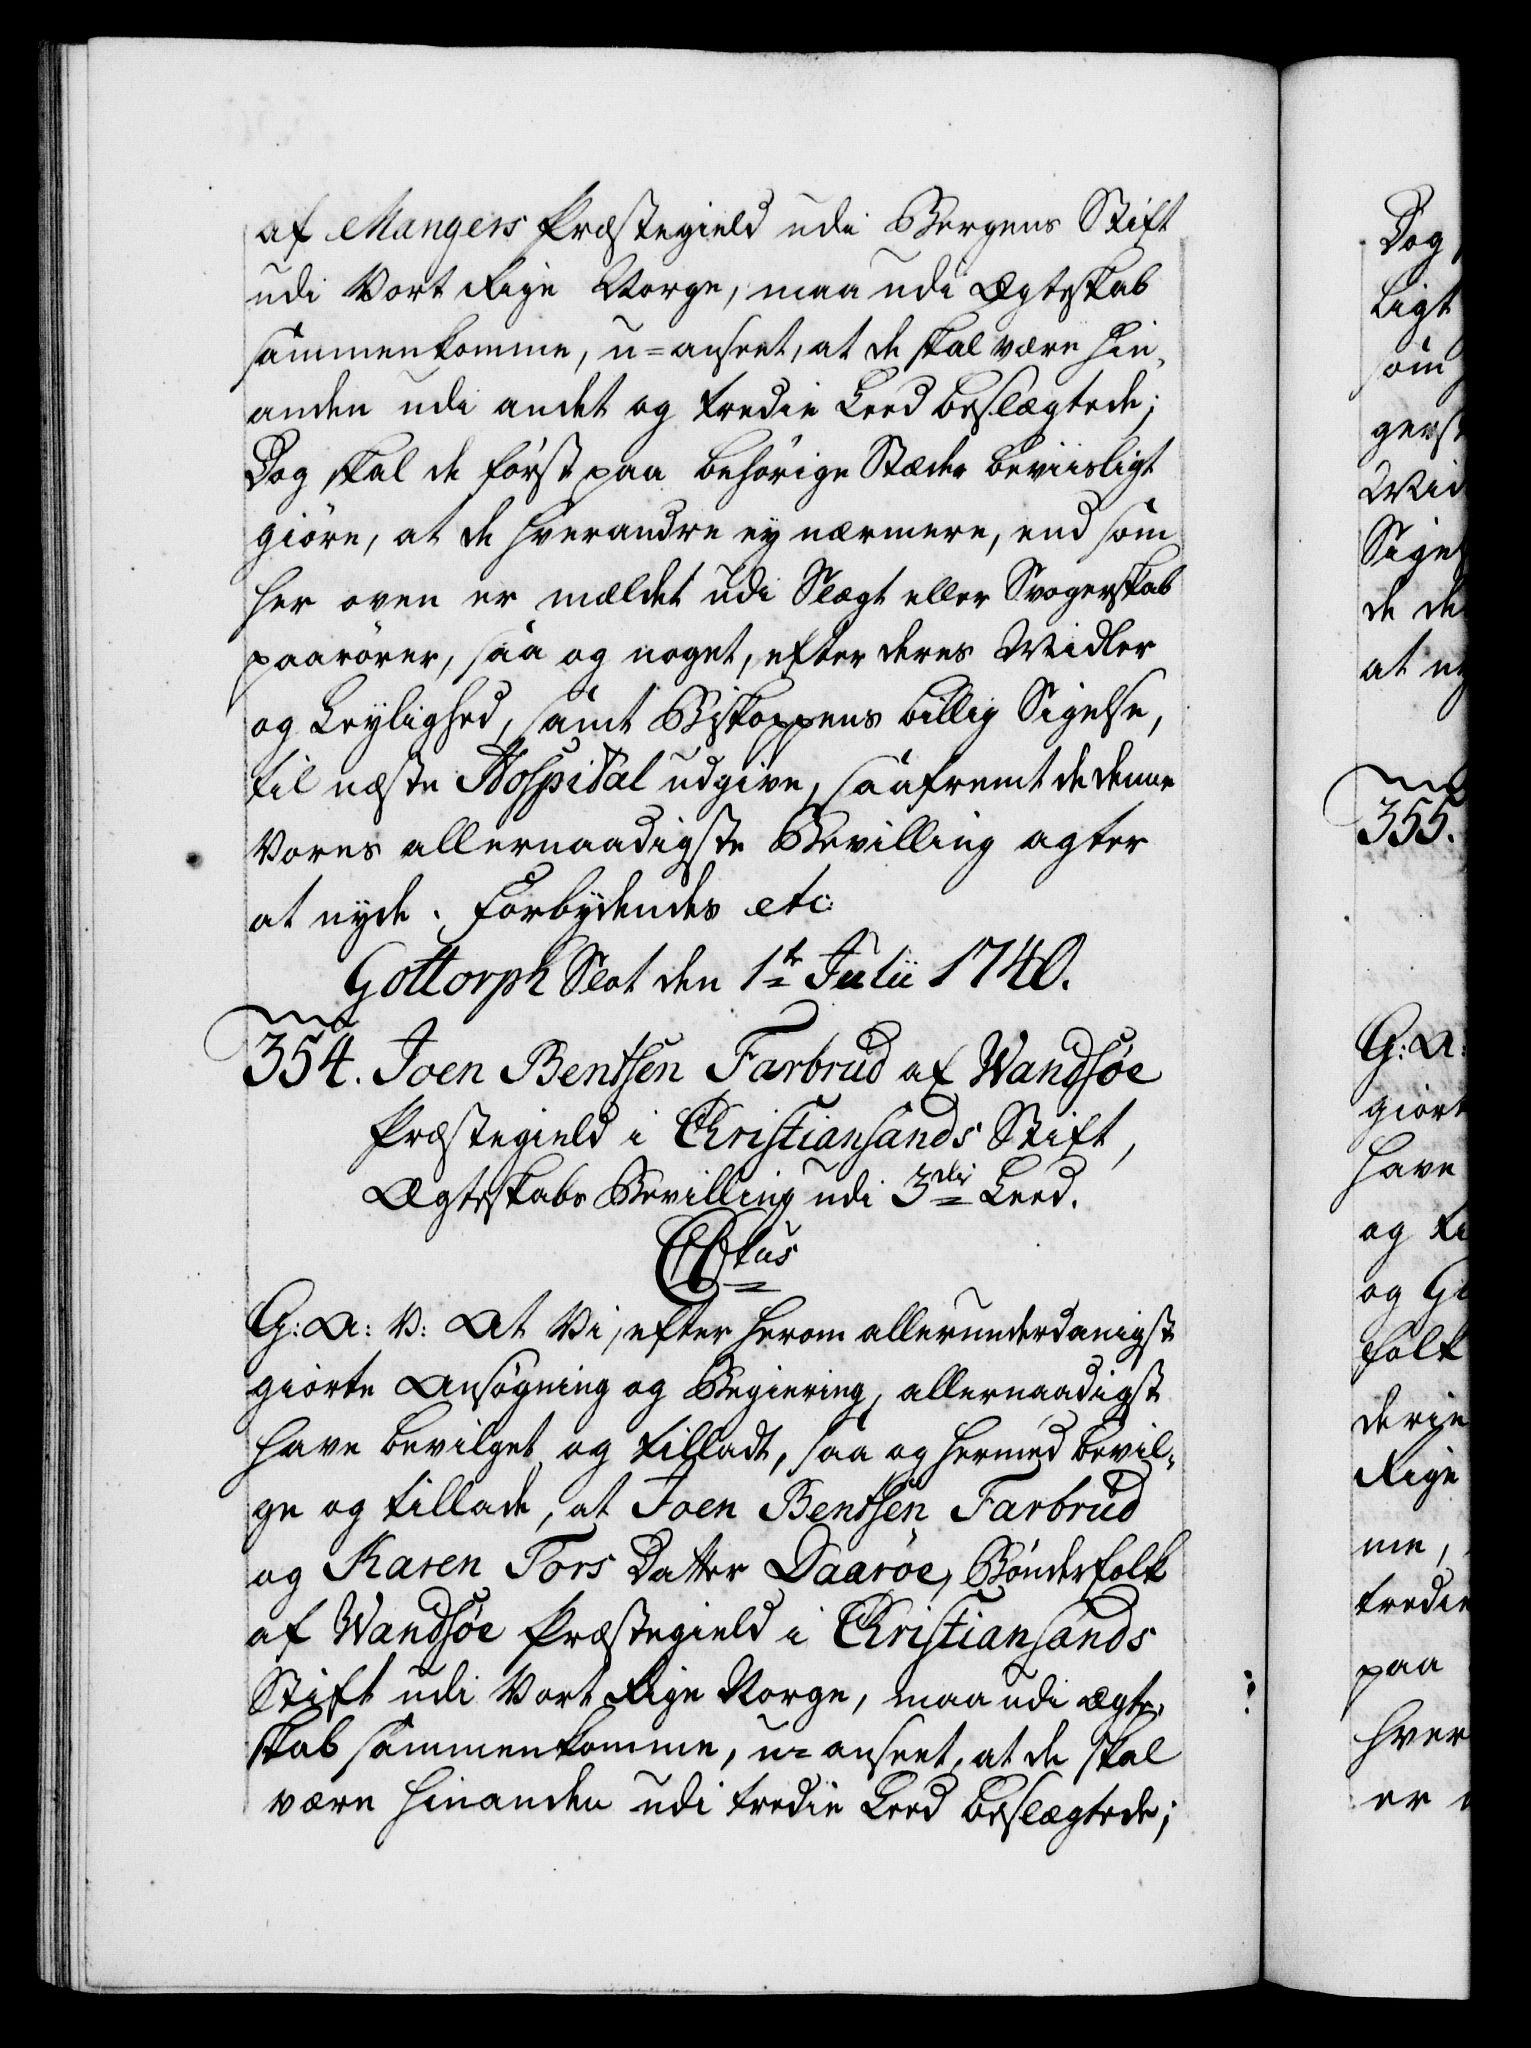 af Mangers Præstegield udi Bergens Stift
udi Vort Rige Norge, maa udi Ægteskab
sammenkomme, u=anseet, at de skal være hin„
anden udi andet og tredie Leed beslægtede;
Dog skal de først paa behørige Stæder beviisligt
giøre, at de hverandre ey nærmere, end som
her oven er mældet udi Slægt eller Svogerskab
paarører, saa og noget, efter deres Midler
og Leylighed, samt Biskoppens billig Sigelse,
til næste Hospital udgive, saafremt de denne
Vores allernaadigste Bevilling agter
at nyde. Forbydendes etc:
Gottorph Slot den 1te Julii 1740.
354. Joen Bentsen Farbrud af Wandsøe
Præstegield i Christiansands Stift,
Ægteskabs Bevilling udi 3die Leed.
G: A: V: At Vi, efter herom allerunderdanigst
giorte Ansøgning og Begiering, allernaadigst
have bevilget og tilladt, saa og hermed bevil„
ge og tillade, at Joen Bentsen Farbrud
og Karen Tors Datter Daarøe, Bønderfolk
af Wandsøe Præstegield i Christiansands
Stift udi Vort Rige Norge, maa udi Ægte„
skab sammenkomme, u=anseet, at de skal
være hinanden udi tredie Leed beslægtede;
Dog
ligt
som
Sigel
de de
355.
G: A:
giort
have
og
og
folk
Rige
me,
tredie
paa
hver
er